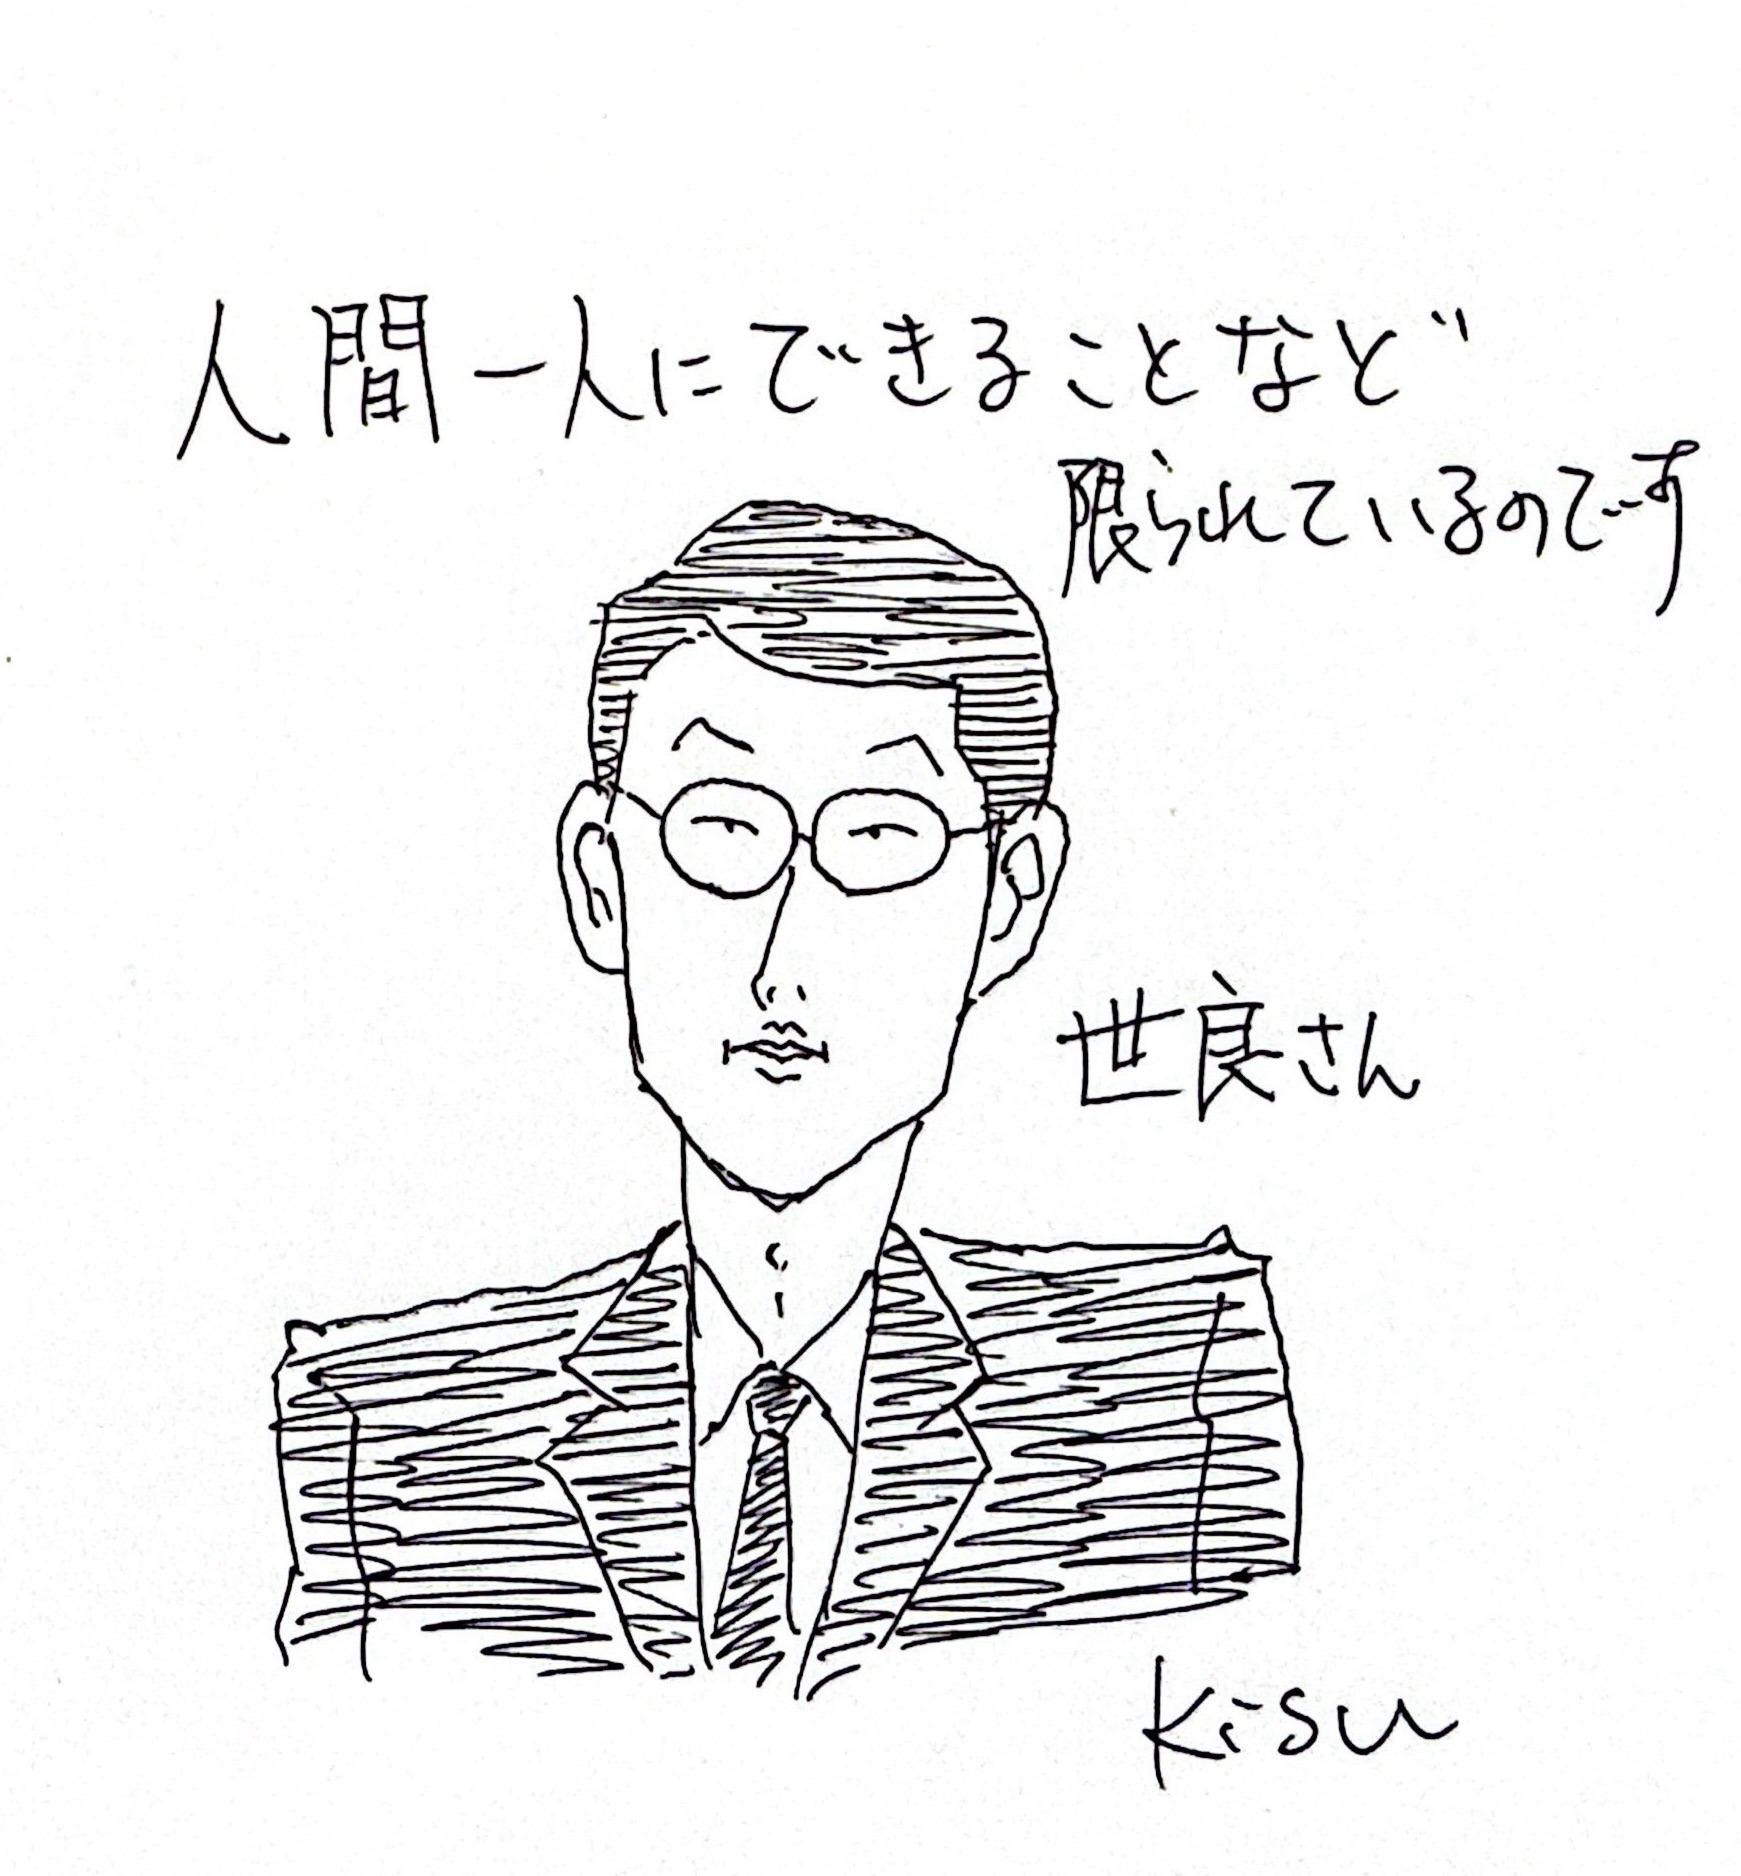 人間一人にできることなど
限られているのです
世良さん
Kisu